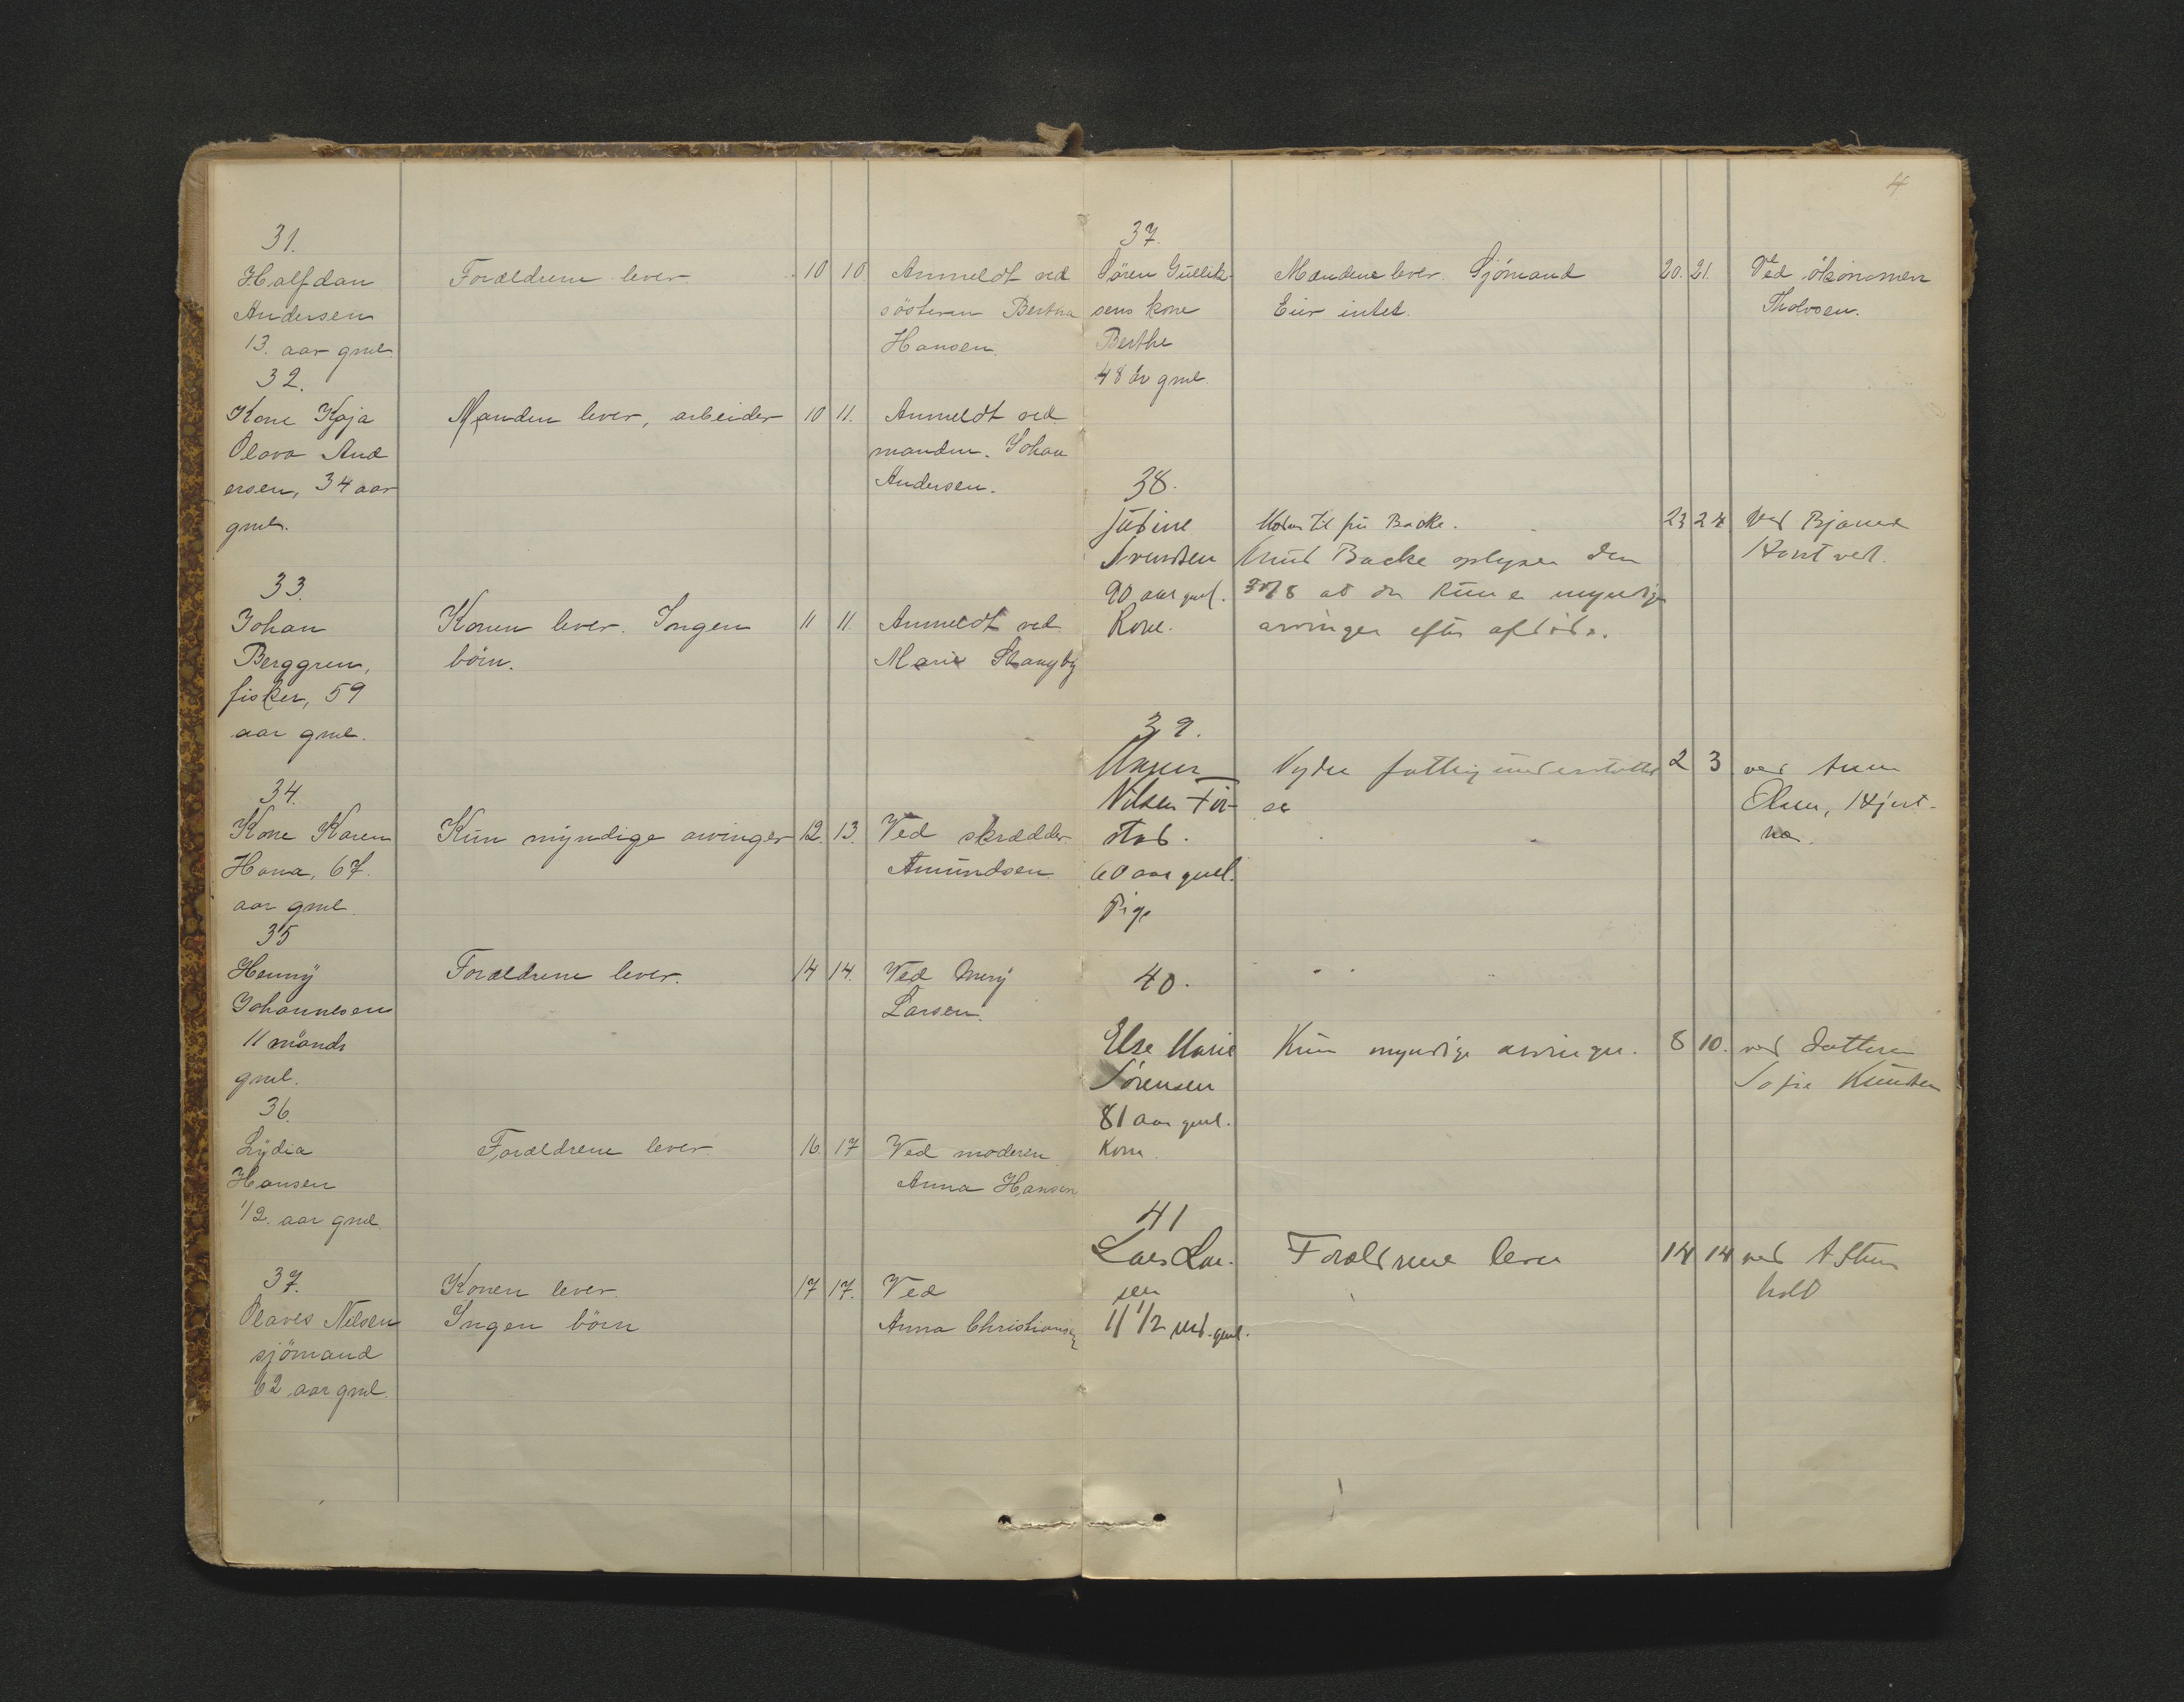 31.
Halfdan Forældrene lever. 10 10 Anmeldt ved
Andersen søsteren Bertha
13. aar gml. Hansen.
32.
Kone Kaja Manden lever, arbeider 10 11. Anmeldt ved
Olava And manden. Johan
ersen, 34 aar Andersen.
gml.
33.
Johan Konen lever. Ingen 11 11. Anmeldt ved
Berggren, börn. Marie Stangby
fisker, 59
aar gml.
34.
Kone Karen Kün myndige arvinger 12. 13. Ved skrædder
Hana, 67. Amündsen
aar gml.
35
Henny Forældrene lever. 14 14. Ved
Johannesen Larsen.
11 månds
gml.
36.
Lydia Forældrene lever. 16. 17 Ved moderen
Hansen Anna Hansen
1/2. aar gml.
37. Konen lever. 17 17. Ved
Olaves Nilsen Ingen börn Anna Christiansen
sjömand
62 aar gml.
4
37.
Sören Güllik- Mandene lever. Sjömand 20. 21. Ved ökonomen
sens kone Eier intet. Tholvsen.
Berthe
48 år gml.
38.
Moder til frü Backe. 23 24 Ved Bjarne
Svendsen Knüd Backe oplyser den
90 aar gml. at der kün er myndige
Kone. arvinger efter afdöde.
39.
Nyder fattigünderstöttel 2 3 ved
Nilsen se Olsen,
60 aar gml.
Pige
40.
Else Marie Kün myndige arvinger. 8 10. ved datteren
Sörensen Sofie Knüdsen
81 aar gml.
Kone.
41
Lars Lar- Forældrene lever 14 14 ved
sen
11 1/2 md. gml.